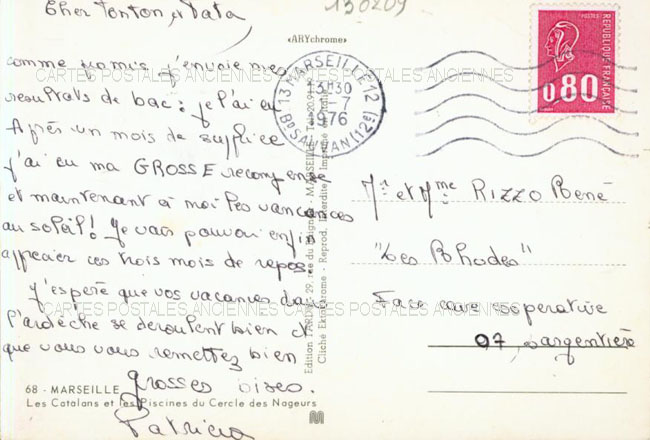 Cher Tonton et Tata
comme promis j'envoie mes
resultats de bac : je l'ai eu
Après un mois de supplice
j'ai eu ma GROSSE recompense
et maintenant à moi les vancances
au soleil ! Je vais pouvoir enfin
apprecier ces trois mois de repos.
J'espère que vos vacances dans
l'ardèche se deroulent bien et
que vous vous remettez bien
grosses bises.
Patricia
130209
«ARYchrome»
13 MARSEILLE 12
13H30
7
1976
Bd SAUVAN (12e)
RÉPUBLIQUE FRANÇAISE
0,80
Mr et Mme RIZZO René
"Les Rhodes"
Face cave cooperative
07 Largentière
68 - MARSEILLE
Les Catalans et les Piscines du Cercle des Nageurs
Edition TARDY, 29, rue du - MARSEILLE
Cliché Ektachrome - Reprod. Interdite - Imprimé
CARTES POSTALES ANCIENNES CARTES POSTALES ANCIENNES CARTES POSTALES ANCIENNES
CARTES POSTALES ANCIENNES CARTES POSTALES ANCIENNES CARTES POSTALES ANCIENNES